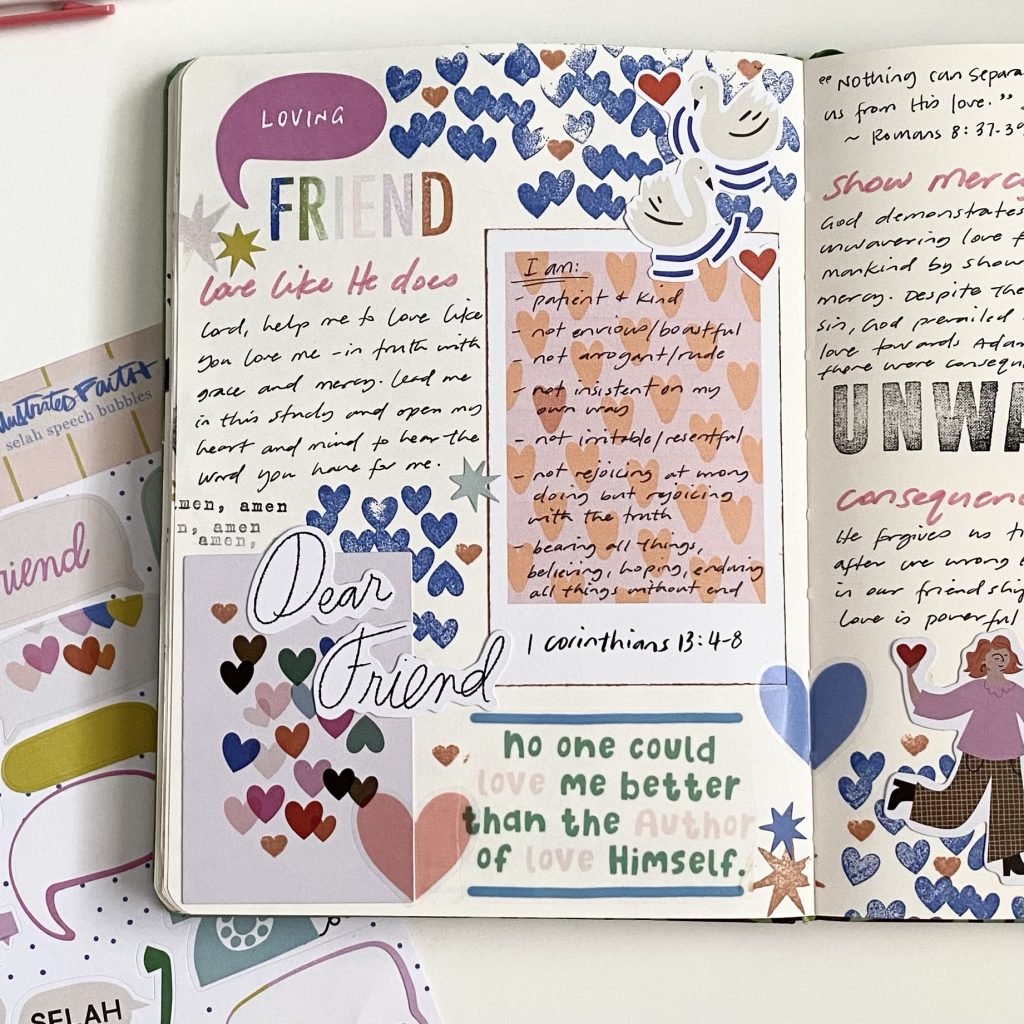 LOVING
FRIEND
love like He does
Lord, help me to love like
you love me - in truth with
grace and mercy. Lead me
in this study and open my
heart and mind to hear the
word you have for me.
amen, amen
n, amen
amen,
Dear
Friend
I am:
- patient & kind
- not envious/boastful
- not arrogant/rude
- not insistent on my
own way
- not irritable/resentful
- not rejoicing at wrong
doing but rejoicing
with the truth
- bearing all things,
believing, hoping, enduring
all things without end
1 Corinthians 13:4-8
No one could
love me better
than the Author
of love Himself.
"Nothing can separa
us from His love."
~ Romans 8:37-39
show mercy
God demonstrates
unwavering love f
mankind by show
mercy. Despite the
sin, God prevailed i
love towards Adam
there were consequ
UNWA
consequenc
He forgives us th
after we wrong
in our friendship
Love is powerful
llustrated Faith
selah speech bubbles
riend
SELAH